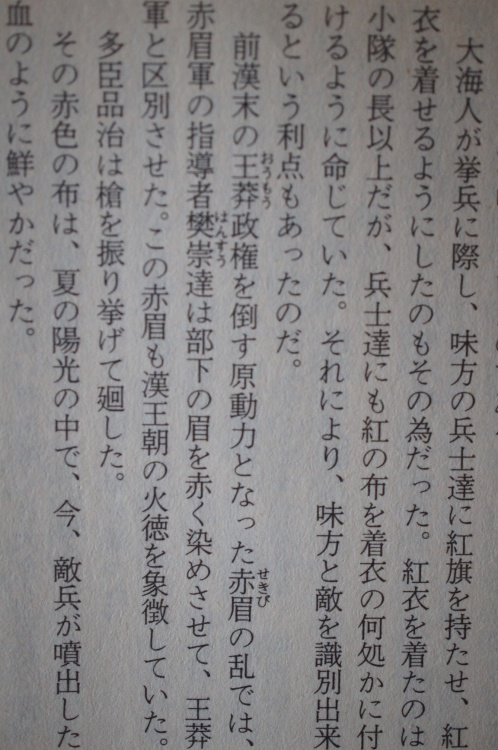 大海人が挙兵に際し、味方の兵士達に紅旗を持たせ、紅
衣を着せるようにしたのもその為だった。紅衣を着たのは
小隊の長以上だが、兵士達にも紅の布を着衣の何処かに付
けるように命じていた。それにより、味方と敵を識別出来
るという利点もあったのだ。
前漢末の王莽政権を倒す原動力となった赤眉の乱では、
おうもう
せきび
赤眉軍の指導者樊崇達は部下の眉を赤く染めさせて、王莽
はんすう
軍と区別させた。この赤眉も漢王朝の火徳を象徴していた。
多臣品治は槍を振り挙げて廻した。
その赤色の布は、夏の陽光の中で、今、敵兵が噴出した
血のように鮮やかだった。